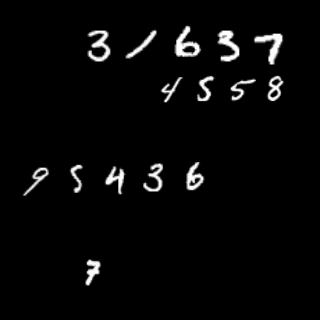 31637
4558
95436
7